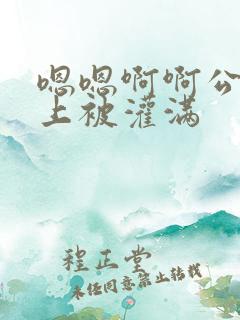 嗯嗯啊啊公
上被灌满
程正堂
未经同意禁止转载